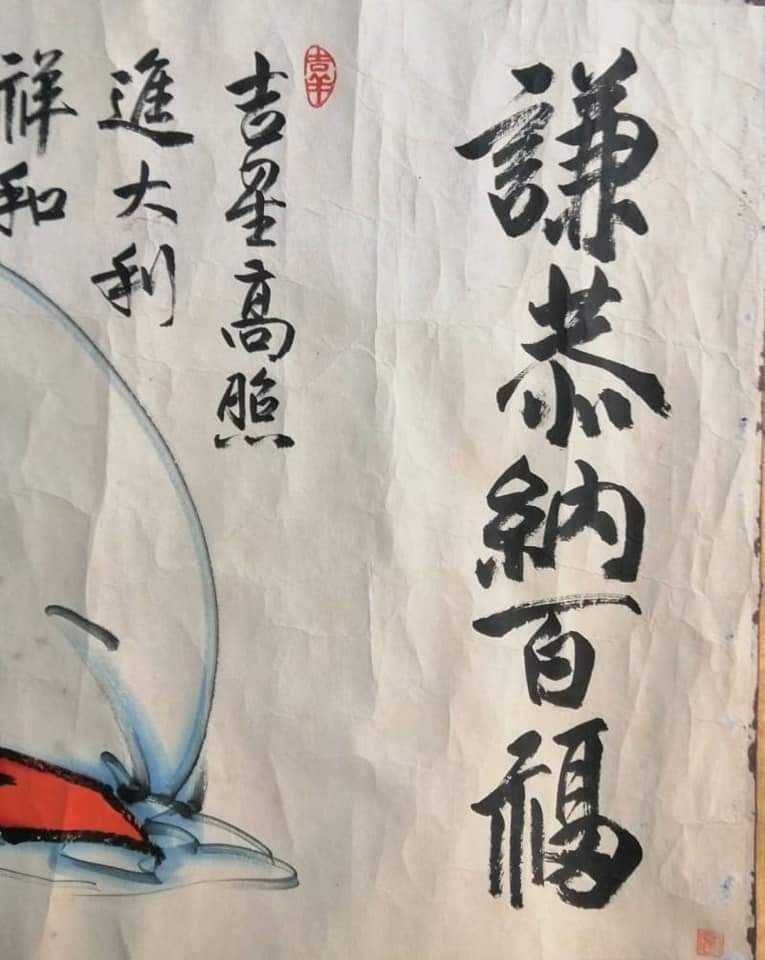 謙恭納百福
吉羊
吉星高照
進大利
祥和